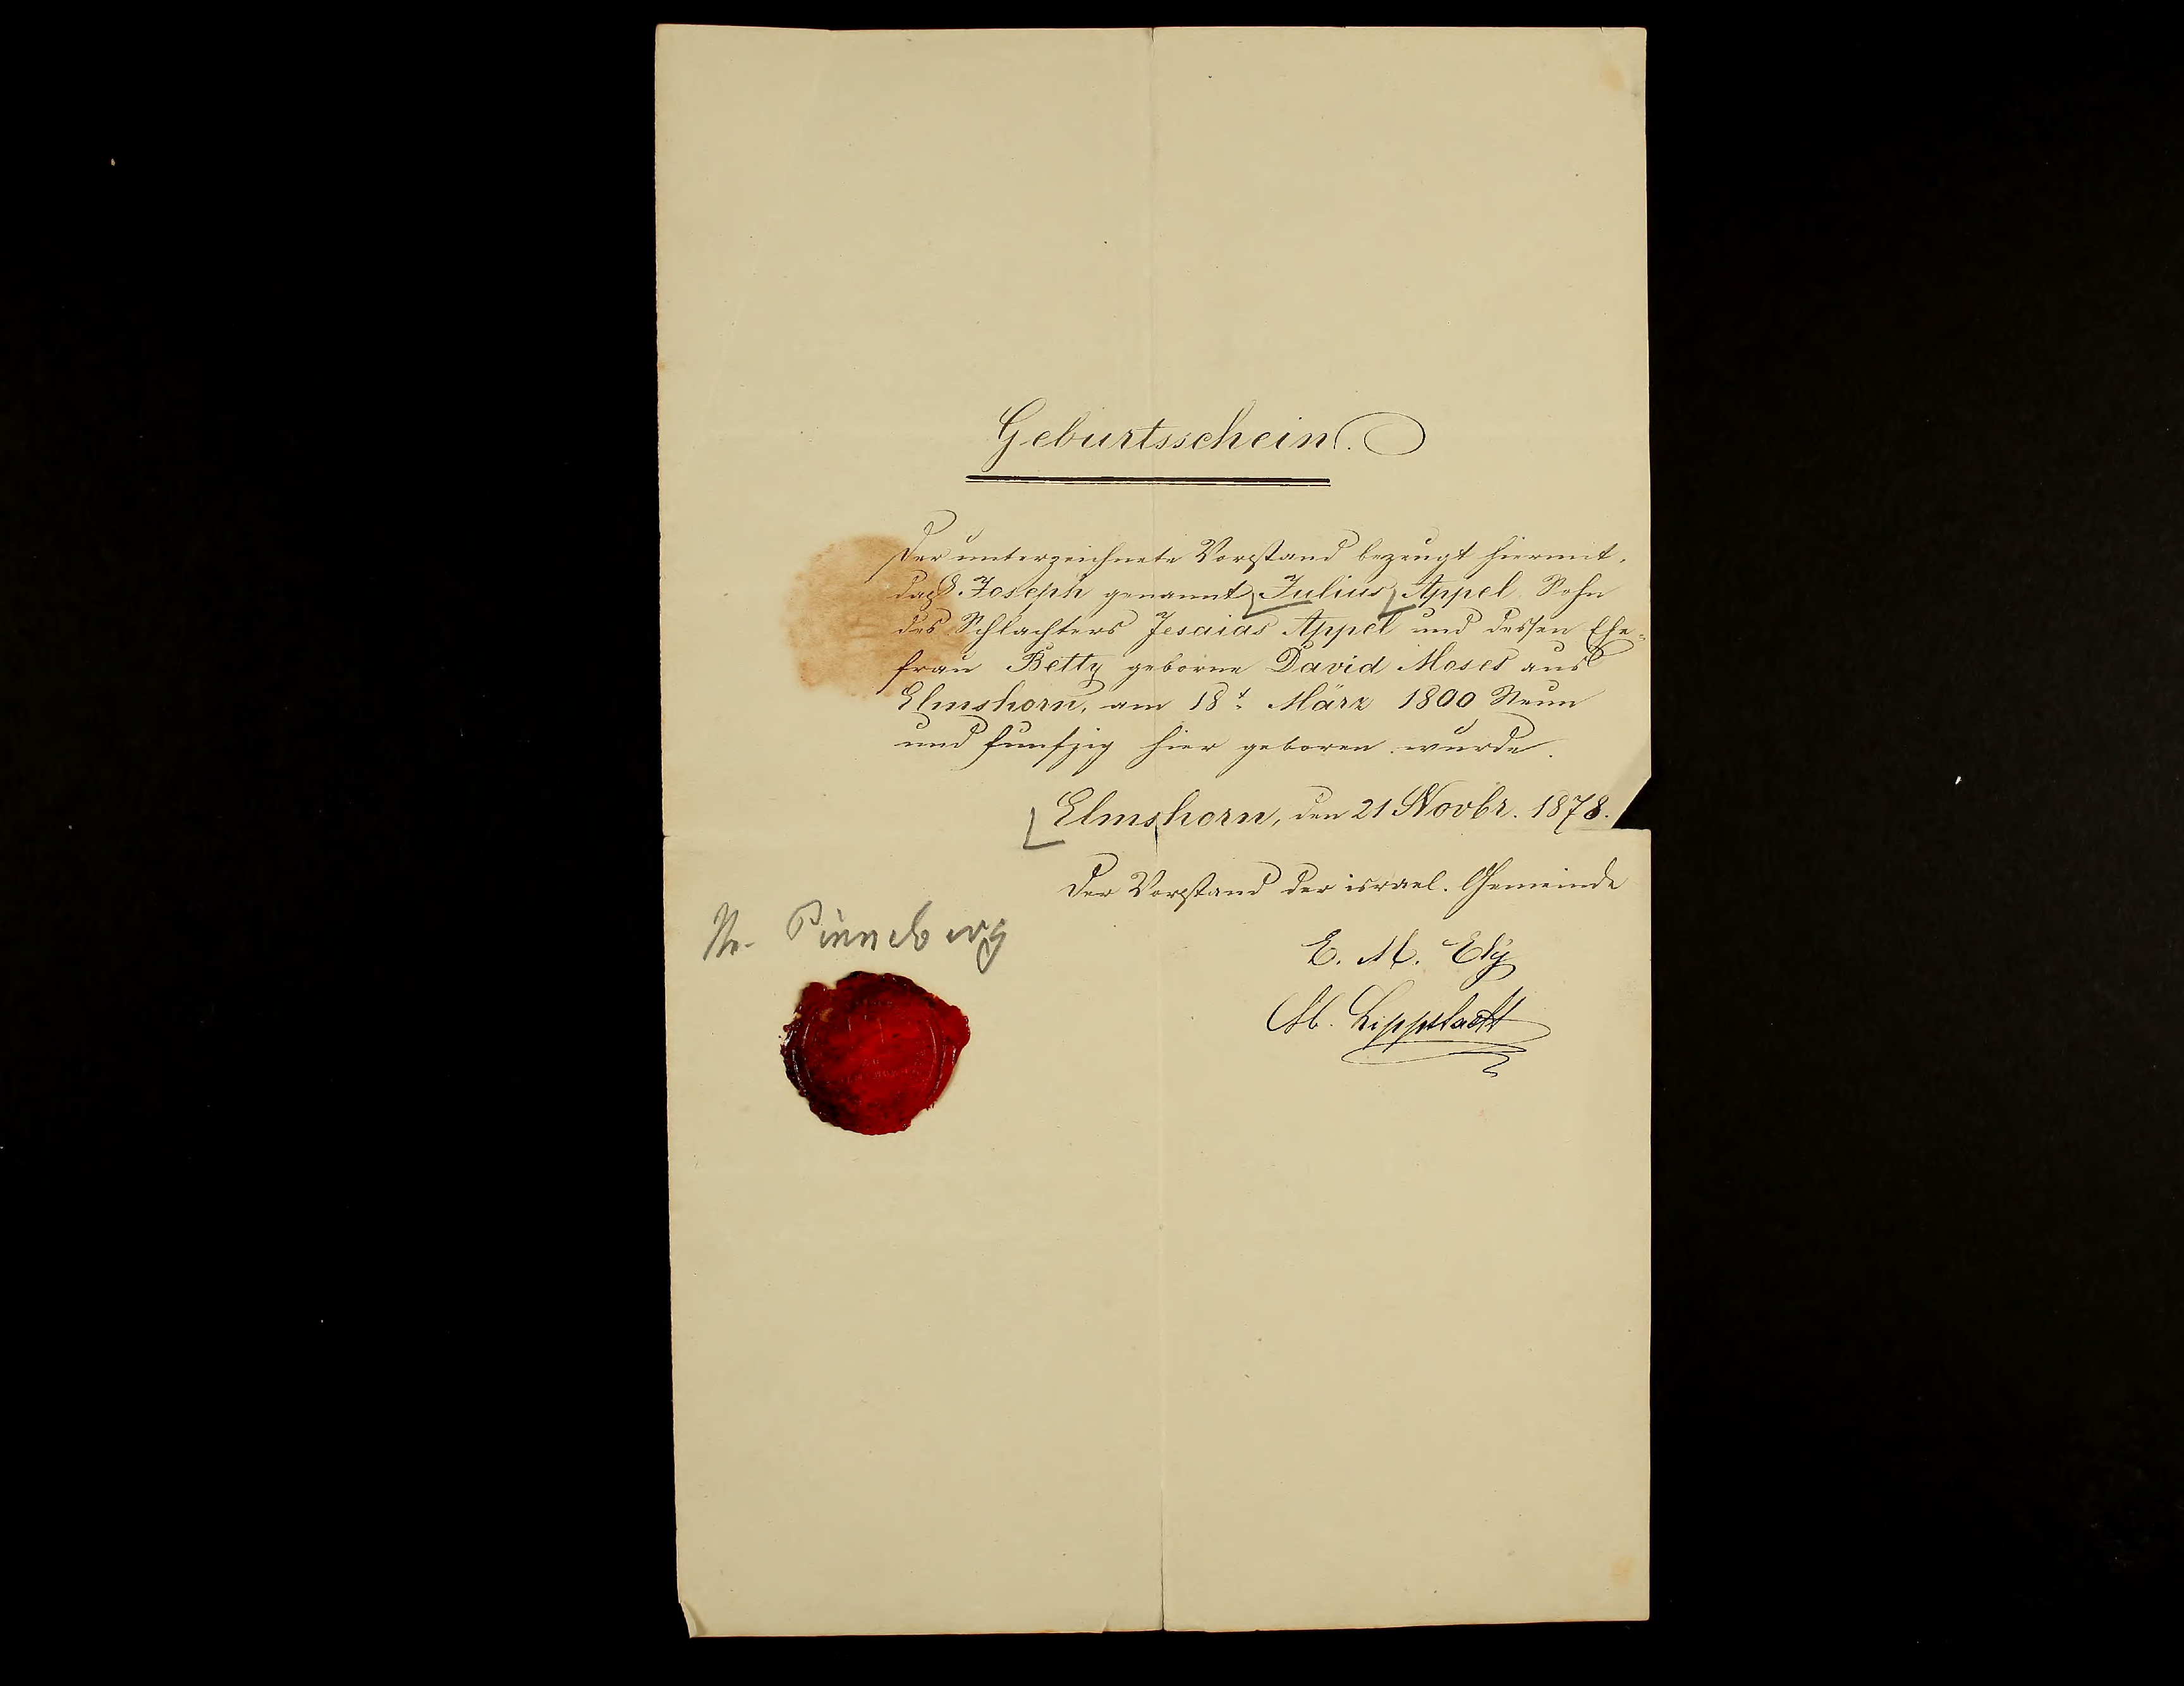 Geburtsschein.
Der unterzeichnete Vorstand bezeugt hiermit,
daß Joseph genannt Julius Appel Sohn
des Schlachters Jesaias Appel und dessen Ehe-
frau Betty geborne David Moses aus
Elmshorn, am 18t. März 1800 Neun
und funfzig hier geboren wurde.
Elmshorn, den 21 Novbr. 1878.
Der Vorstand der israel. Gemeinde
Pinneberg
E. M. Ely
M. Lippstadt